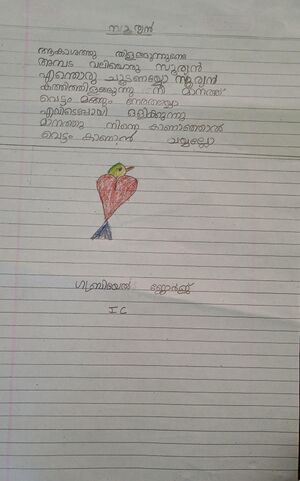 സൂര്യൻ
ആകാശത്തു തിളങ്ങുന്നുണ്ടേ
അമ്പട വലിയൊരു സൂര്യൻ
എന്തൊരു ചൂടാണയ്യോ സൂര്യന്
കത്തിത്തിളങ്ങുന്നു നീ മാനത്ത്
വെട്ടം മങ്ങും
എവിടെപ്പോയി ഒളിക്കുന്നു
മാനത്തു നിന്നെ കാണാഞ്ഞാൽ
വെട്ടം കാണാൻ വയ്യല്ലോ
ഗബ്രിയേൽ ജോർജ്ജ്
I C